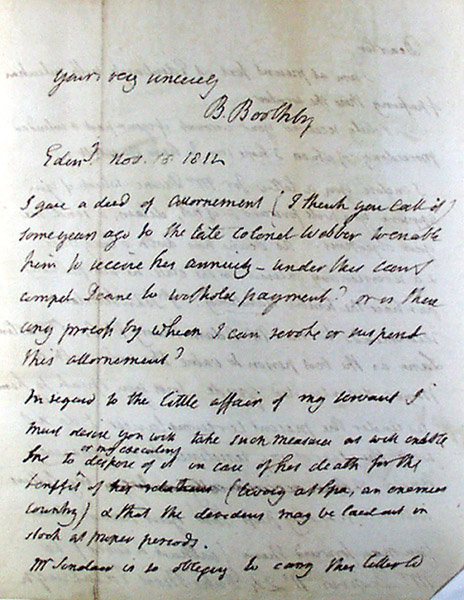 Yours very sincerely
B. Boothby
Edinr. Nov. 18. 1812
I gave a deed of attornement (I think you call it)
some years ago to the late Colonel Webber to enable
him to receive his annuity – under this can I
compel Deane to withold payment? or is there
any process by which I can revoke or suspend
this attornement?
In regard to the little affair of my servant I
must desire you will take such measures as will enable
or my executors
me to dispose of it in case of her death for the
benefit of her relations (being at Spa, an enemies
country) & that the dividens may be laid out in
stock at proper periods.
Mr Sinclair is so obliging to carry this letter to